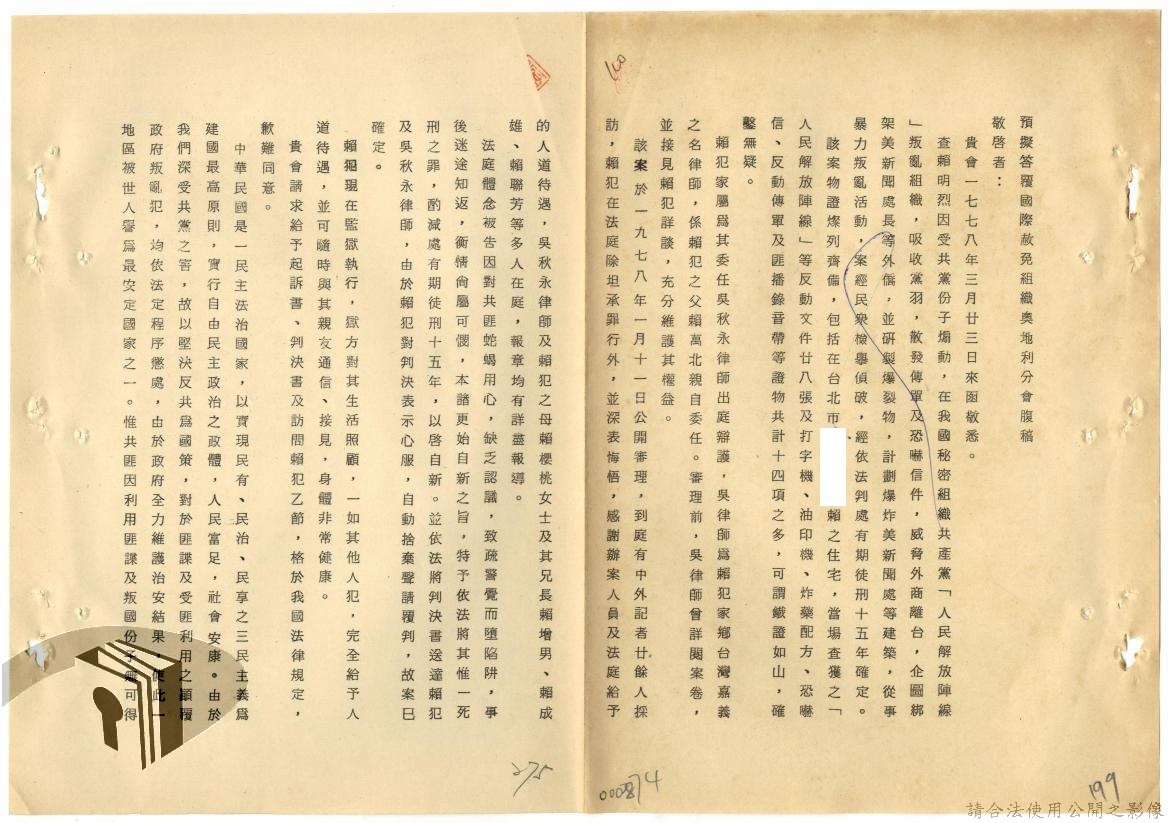 預擬答覆國際赦免組織奧地利分會腹稿
敬啓者：
貴會一七七八年三月廿三日來函敬悉。
查賴明烈因受共黨份子煽動，在我國秘密組織共產黨「人民解放陣線
」叛亂組織，吸收黨羽，散發傳單及恐嚇信件，威脅外商離台，企圖綁
架美新聞處長等外僑，並研製爆裂物，計劃爆炸美新聞處等建築，從事
暴力叛亂活動，案經民衆檢舉偵破，經依法判處有期徒刑十五年確定。
該案物證燦列齊備，包括在台北市賴之住宅，當場查獲之「
人民解放陣線」等反動文件廿八張及打字機、油印機、炸藥配方、恐嚇
信、反動傳單及匪播錄音帶等證物共計十四項之多，可謂鐵證如山，確
鑿無疑。
賴犯家屬爲其委任吳秋永律師出庭辯護，吳律師爲賴犯家鄉台灣嘉義
之名律師，係賴犯之父賴萬北親自委任。審理前，吳律師曾詳閱案卷，
並接見賴犯詳談，充分維護其權益。
該案於一九七八年一月十一日公開審理，到庭有中外記者廿餘人採
訪，賴犯在法庭除坦承罪行外，並深表悔悟，感謝辦案人員及法庭給予
的人道待遇，吳秋永律師及賴犯之母賴櫻桃女士及其兄長賴增男、賴成
雄、賴聯芳等多人在庭，報章均有詳盡報導。
法庭體念被告因對共匪蛇蝎用心，缺乏認識，致疏警覺而墮陷阱，事
後迷途知返，衡情尙屬可憫，本諸更始自新之旨，特予依法將其惟一死
刑之罪，酌減處有期徒刑十五年，以啓自新。並依法將判決書送達賴犯
及吳秋永律師，由於賴犯對判決表示心服，自動捨棄聲請覆判，故案已
確定。
賴犯現在監獄執行，獄方對其生活照顧，一如其他人犯，完全給予人
道待遇，並可隨時與其親友通信、接見，身體非常健康。
貴會請求給予起訴書、判決書及訪問賴犯乙節，格於我國法律規定，
歉難同意。
中華民國是一民主法治國家，以實現民有、民治、民享之三民主義爲
建國最高原則，實行自由民主政治之政體，人民富足，社會安康。由於
我們深受共黨之害，故以堅決反共爲國策，對於匪諜及受匪利用之顛覆
政府叛亂犯，均依法定程序懲處，由於政府全力維護治安結果，使此一
地區被世人譽爲最安定國家之一。惟共匪因利用匪諜及叛國份子無可得
100
199
000874
275
請合法使用公開之影像